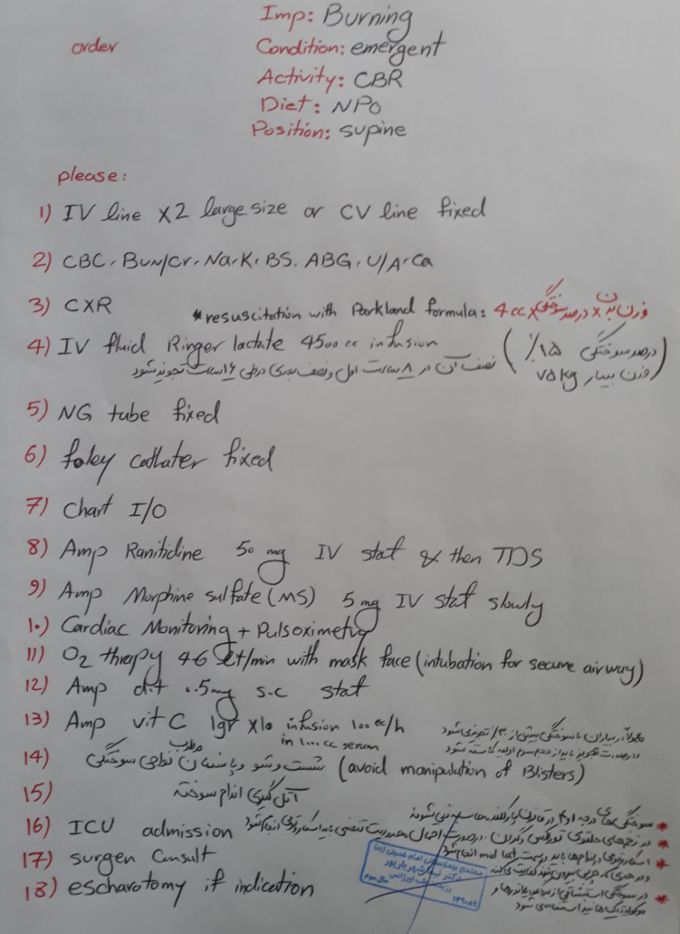 Imp: Burning
order
Condition: emergent
Activity: CBR
Diet: NPO
Position: supine
please:
1) IV line x2 large size or CV line fixed
2) CBC, Bun/Cr, Na, K, BS, ABG, U/A, Ca
3) CXR
*resuscitation with Parkland formula: 4cc x درصد سوختگی x وزن بدن
4) IV fluid Ringer lactate 4500 cc infusion
(درصد سوختگی ۱۵٪
وزن بیمار ۷۵kg)
نصف آن در ۸ ساعت اول و نصف بعدی در طی ۱۶ ساعت تجویز شود
5) NG tube fixed
6) foley cathater fixed
7) Chart I/O
8) Amp Ranitidine 50 mg IV stat & then TDS
9) Amp Morphine sulfate (MS) 5mg IV stat slowly
10) Cardiac Monitoring + Pulsoximetry
11) O2 thrapy 4-6 Lit/min with mask face (intubation for secure airway)
12) Amp d.t 0.5mg s.c stat
13) Amp vit C 1gr x10 infusion 100cc/h
in 1000cc serum
14) شست و شو و پانسمان مرطب نواحی سوختگی (avoid manipulation of Blisters)
15) آتل گیری اندام سوخته
16) ICU admission
17) surgen Consult
18) escharotomy if indication